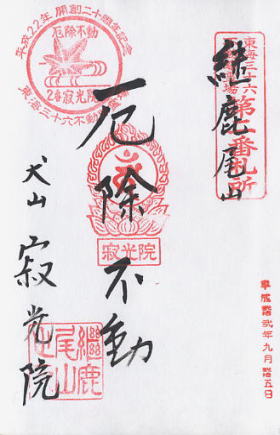 継鹿尾山
東海三十六
第二番札所
厄除不動
犬山 寂光院
平成22年 開創二十周年記念
厄除不動
2番寂光院
東海三十六不動
寂光院
継鹿
尾山
平成拾弐年九月拾五日